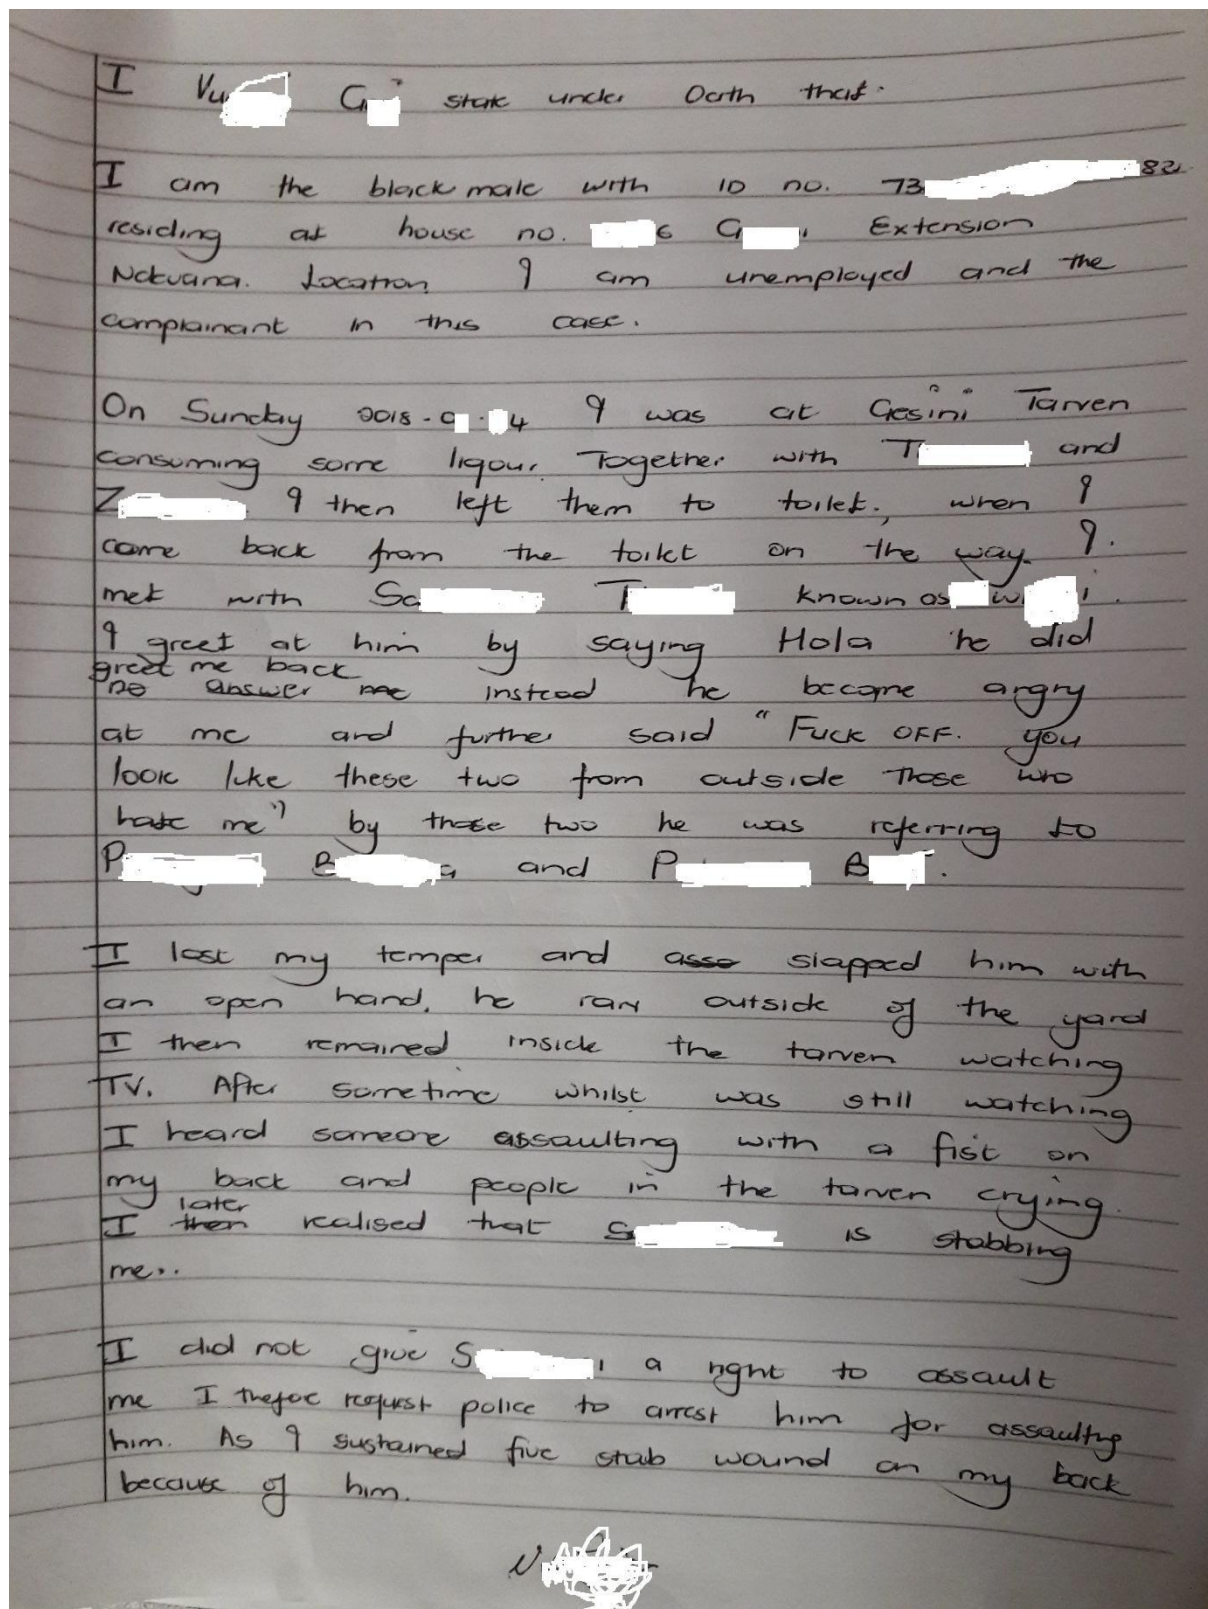 I Vu G state under Oath that.
I am the black male with ID no. 73 82
residing at house no. 6 G Extension
Location I am unemployed and the
complainant in this case.
On Sunday 2018 - 0 . 4 I was at Gesini Tarven
consuming some liqour. Together with T and
Z I then left them to toilet., when I
came back from the toilet on the way. I.
met with Sa T known as w i.
I greet at him by saying Hola he did
greet me back
no answer me instead he became angry
at me and further said "Fuck OFF. you
look like these two from outside those who
hate me" by those two he was referring to
P B a and P B .
I lost my temper and asso slapped him with
an open hand, he ran outside of the yard
I then remained inside the tarven watching
TV. After sometime whilst was still watching
I heard someone assaulting with a fist on
my back and people in the tarven crying.
later
I then realised that S is stabbing
me..
I did not give S i a right to assault
me I thefoe request police to arrest him for assaulting
him. As I sustained five stab wound on my back
because of him.